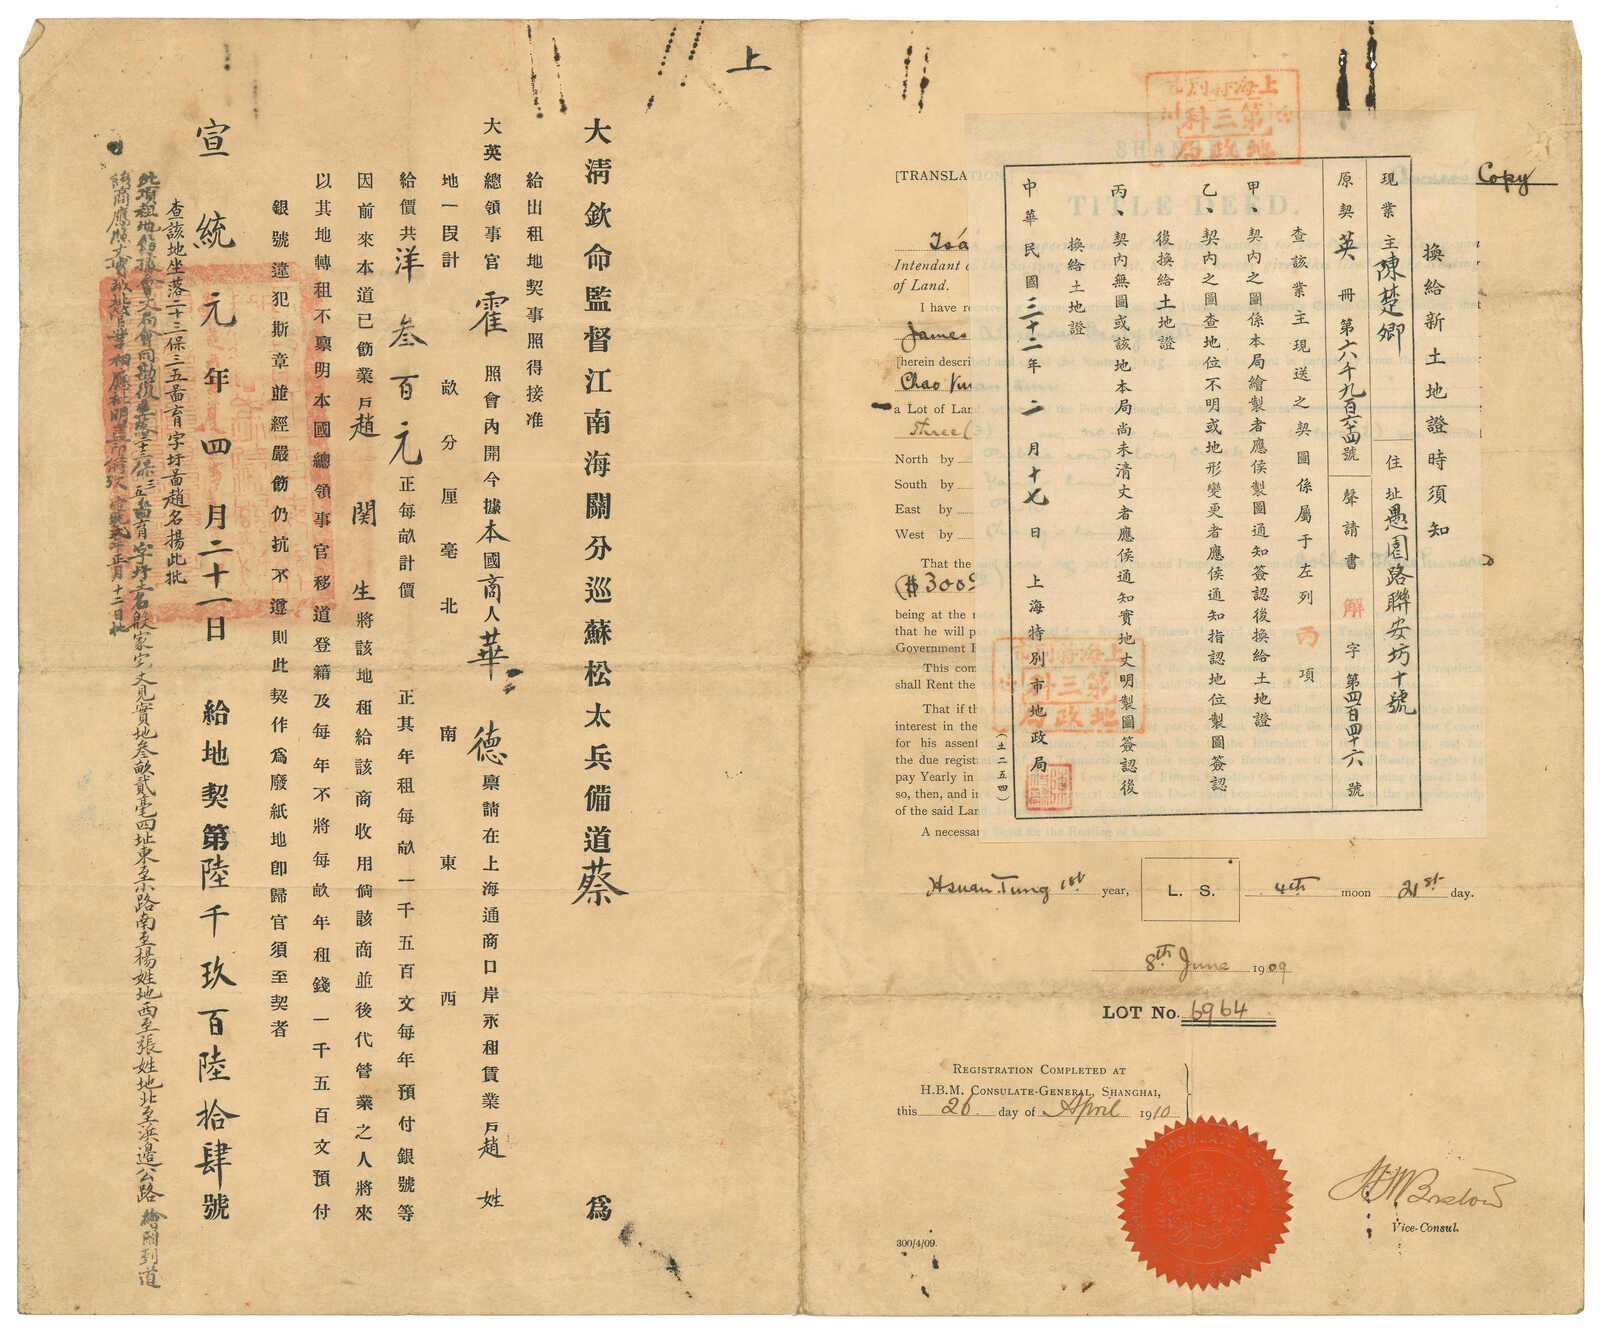 上
大清欽命監督江南海關分巡蘇松太兵備道蔡 爲
給出租地契事照得接准
大英總領事官霍 照會內開今據本國商人華德稟請在上海通商口岸永租賃業戶趙 姓
地一段計 畝 分 厘 毫北 南 東 西
給價共洋叁百元正每畝計價 正其年租每畝一千五百文每年預付銀號等
因前來本道已飭業戶趙関生將該地租給該商收用倘該商並後代管業之人將來
以其地轉租不稟明本國總領事官移道登籍及每年不將每畝年租錢一千五百文預付
銀號違犯斯章並經嚴飭仍抗不遵則此契作爲廢紙地卽歸官須至契者
宣統元年四月二十一日 給地契第陸千玖百陸拾肆號
查該地坐落二十三保三五啚育字圩啚趙名揚此批
宅丈見實地叁畝貳毫四址東至小路南至楊姓地西至張姓地北至浜邊公路繪圖到道
上海特別市
第三科
地政局
Copy
SHANGHAI
TITLE DEED.
[TRANSLA
Intendant
of Land.
I have re
James
[herein descri
Chao Kw
a Lot of Lan
three (3)
North by
South by
East by
West by
That the
($300
being at the r
that he will p
Government I
This com
shall Rent the
That if th
interest in the
for his assent
the due regist
pay Yearly in
so, then, and in
of the said Lar
A necessar
換給新土地證時須知
現業主陳楚卿 住址愚園路聯安坊十號
原契英冊第六千九百六十四號 聲請書解字第四百四十六號
查該業主現送之契圖係屬于左列丙項
甲、契內之圖係本局繪製者應俟製圖通知簽認後換給土地證
乙、契內之圖查地位不明或地形變更者應俟通知指認地位製圖簽認
後換給土地證
丙、契內無圖或該地本局尚未清丈者應俟通知實地丈明製圖簽認後
換給土地證
中華民國三十二年二月十七日 上海特別市地政局
(土二五四)
上海特別市
第三科
地政局
Hsuan Tung 1st year, L. S. 4th moon 21st day.
8th June 1909
LOT No. 6964
REGISTRATION COMPLETED AT
H.B.M. CONSULATE-GENERAL, SHANGHAI,
this 26 day of April 1910
Vice-Consul.
300/4/09.